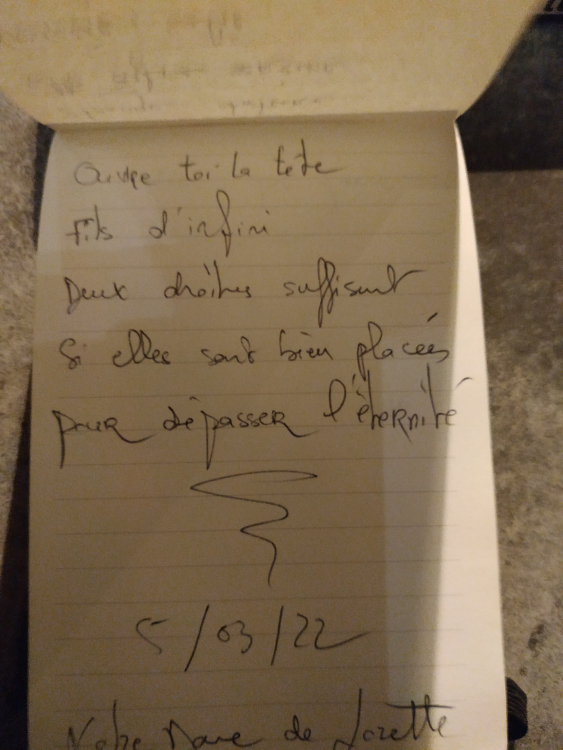 Ouvre toi la tête
fils d'infini
Deux droites suffisent
Si elles sont bien placées
pour dépasser l'éternité
5/03/22
Notre Dame de Lorette